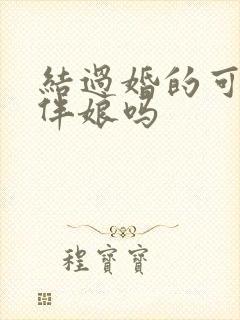 結過婚的可
伴娘嗎
程寶寶